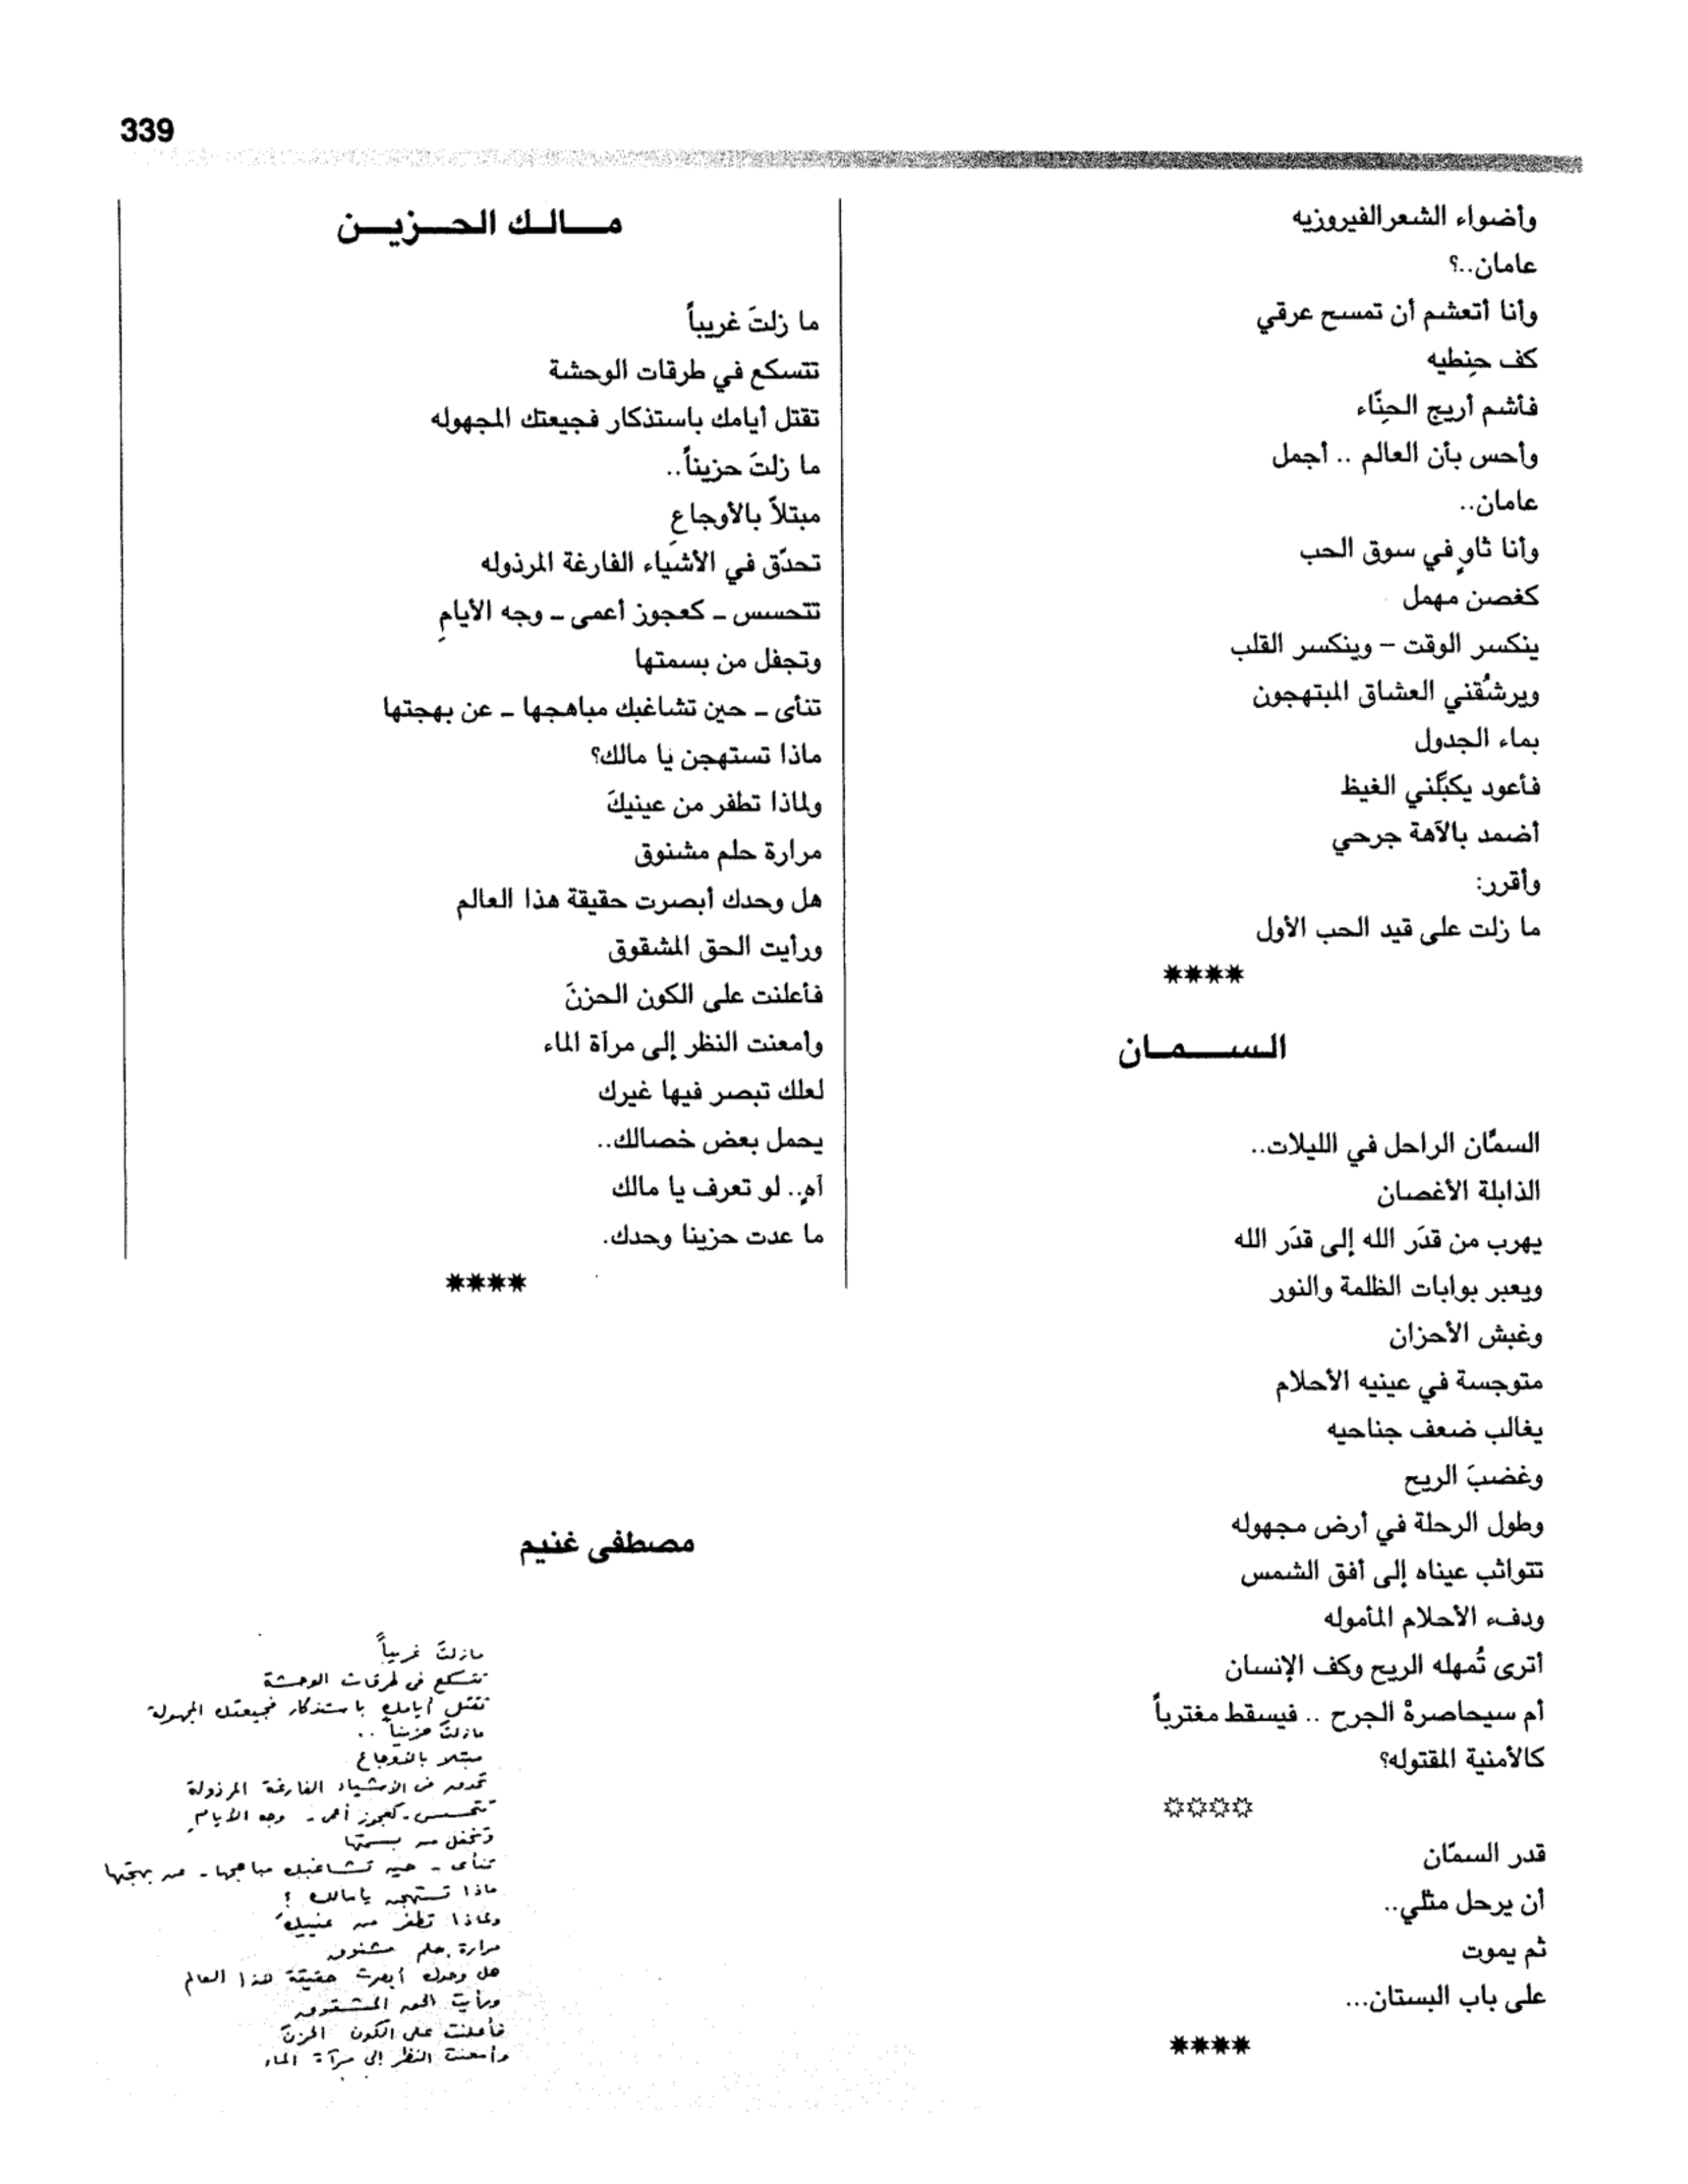 339
وأضواء الشعر الفيروزيه
عامان..؟
وأنا أتعشم أن تمسح عرقي
كف حِنطيه
فأشم أريج الحِنّاء
وأحس بأن العالم .. أجمل
عامان..
وأنا ثاوٍ في سوق الحب
كغصن مهمل
ينكسر الوقت – وينكسر القلب
ويرشُقني العشاق المبتهجون
بماء الجدول
فأعود يكبِّلني الغيظ
أضمد بالآهة جرحي
وأقرر:
ما زلت على قيد الحب الأول
****
الســـمــان
السمَّان الراحل في الليلات..
الذابلة الأغصان
يهرب من قدَر الله إلى قدَر الله
ويعبر بوابات الظلمة والنور
وغبش الأحزان
متوجسة في عينيه الأحلام
يغالب ضعف جناحيه
وغضبَ الريح
وطول الرحلة في أرض مجهوله
تتواثب عيناه إلى أفق الشمس
ودفء الأحلام المأموله
أترى تُمهله الريح وكف الإنسان
أم سيحاصرهْ الجرح .. فيسقط مغترباً
كالأمنية المقتوله؟
****
قدر السمّان
أن يرحل مثلي..
ثم يموت
على باب البستان...
****
مـــالـك الحـــزيــن
ما زلتَ غريباً
تتسكع في طرقات الوحشة
تقتل أيامك باستذكار فجيعتك المجهوله
ما زلتَ حزيناً..
مبتلاً بالأوجاعِ
تحدّق في الأشياء الفارغة المرذوله
تتحسس ـ كعجوز أعمى ـ وجه الأيامِ
وتجفل من بسمتها
تنأى ـ حين تشاغبك مباهجها ـ عن بهجتها
ماذا تستهجن يا مالك؟
ولماذا تطفر من عينيكَ
مرارة حلم مشنوق
هل وحدك أبصرت حقيقة هذا العالم
ورأيت الحق المشقوق
فأعلنت على الكون الحزنَ
وأمعنت النظر إلى مرآة الماء
لعلك تبصر فيها غيرك
يحمل بعض خصالك..
آهٍ.. لو تعرف يا مالك
ما عدت حزينا وحدك.
****
مصطفى غنيم
مازلتَ غريباً
تتسكع فى طرقات الوحشة
تقتل أيامك باستذكار فجيعتك المجهولة
مازلتَ حزيناً ..
مبتلا بالأوجاع
تحدق فى الأشياء الفارغة المرذولة
تتحسس ـ كعجوز أعمى ـ وجه الأيامِ
وتجفل من بسمتها
تنأى ـ حين تشاغبك مباهجها ـ عن بهجتها
ماذا تستهجن يامالك ؟
ولماذا تطفر من عينيكَ
مرارة حلم مشنوق
هل وحدك أبصرت حقيقة هذا العالم
ورأيت الحق المشقوق
فأعلنت على الكون الحزنَ
وأمعنت النظر إلى مرآة الماء